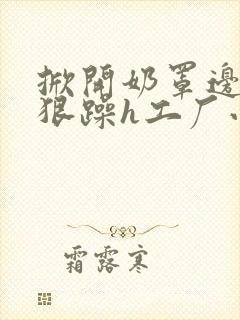 掀開奶罩邊
狠躁h工厂、
霜露寒